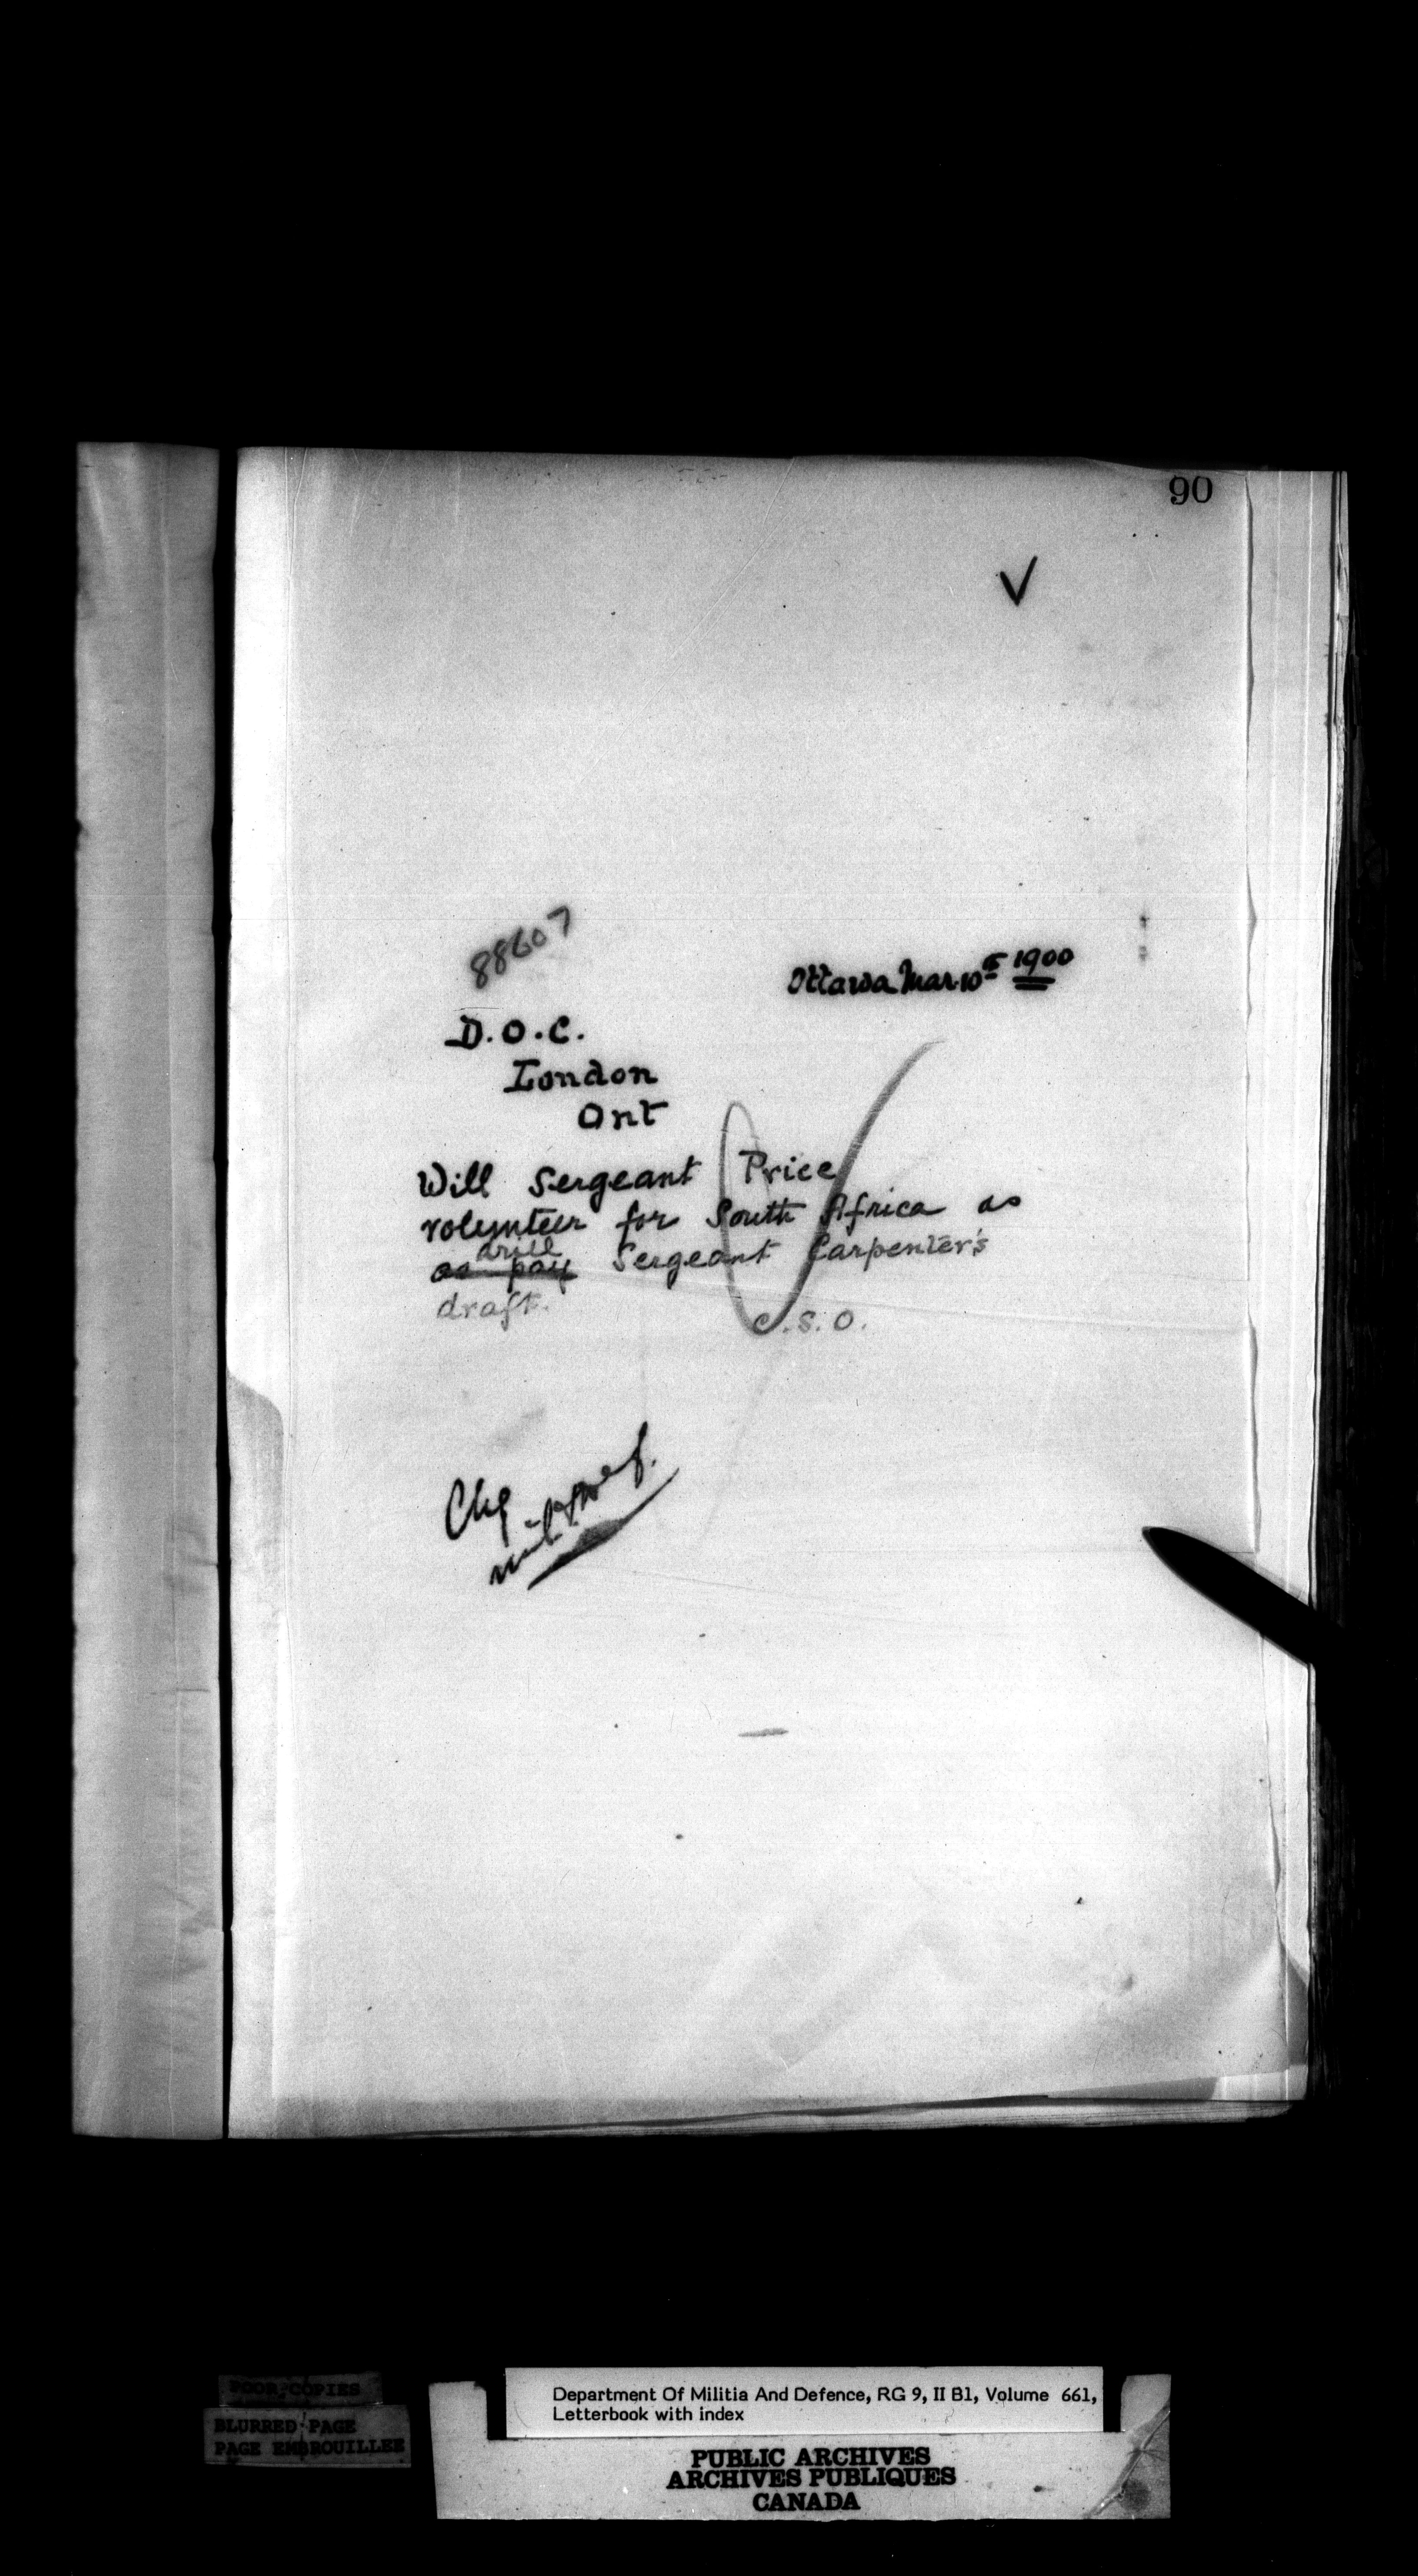 90
88607
Ottawa Mar 10th 1900
D.O.C.
London
Ont
Will Sergeant Price
volunteer for South Africa as
drill
as pay Sergeant Carpenter's
draft.
C.S.O.
Chg
POOR COPIES
BLURRED PAGE
PAGE EMBROUILLEE
Department Of Militia And Defence, RG 9, II B1, Volume 661,
Letterbook with index
PUBLIC ARCHIVES
ARCHIVES PUBLIQUES
CANADA